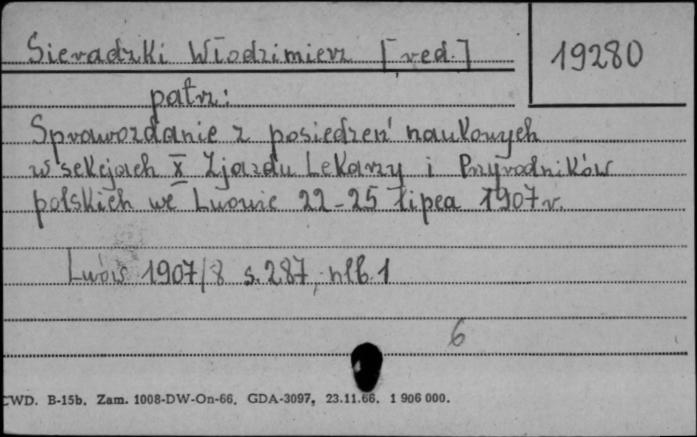 Sieradzki Włodzimierz [red.]
19280
patrz:
Sprawozdanie z posiedzeń naukowych
w sekcjach X Zjazdu Lekarzy i Przyrodników
polskich we Lwowie 22-25 lipca 1907 r.
Lwów 1907/8 s. 287, nlb. 1
6
CWD. B-15b. Zam. 1008-DW-On-66. GDA-3097, 23.11.66. 1 906 000.